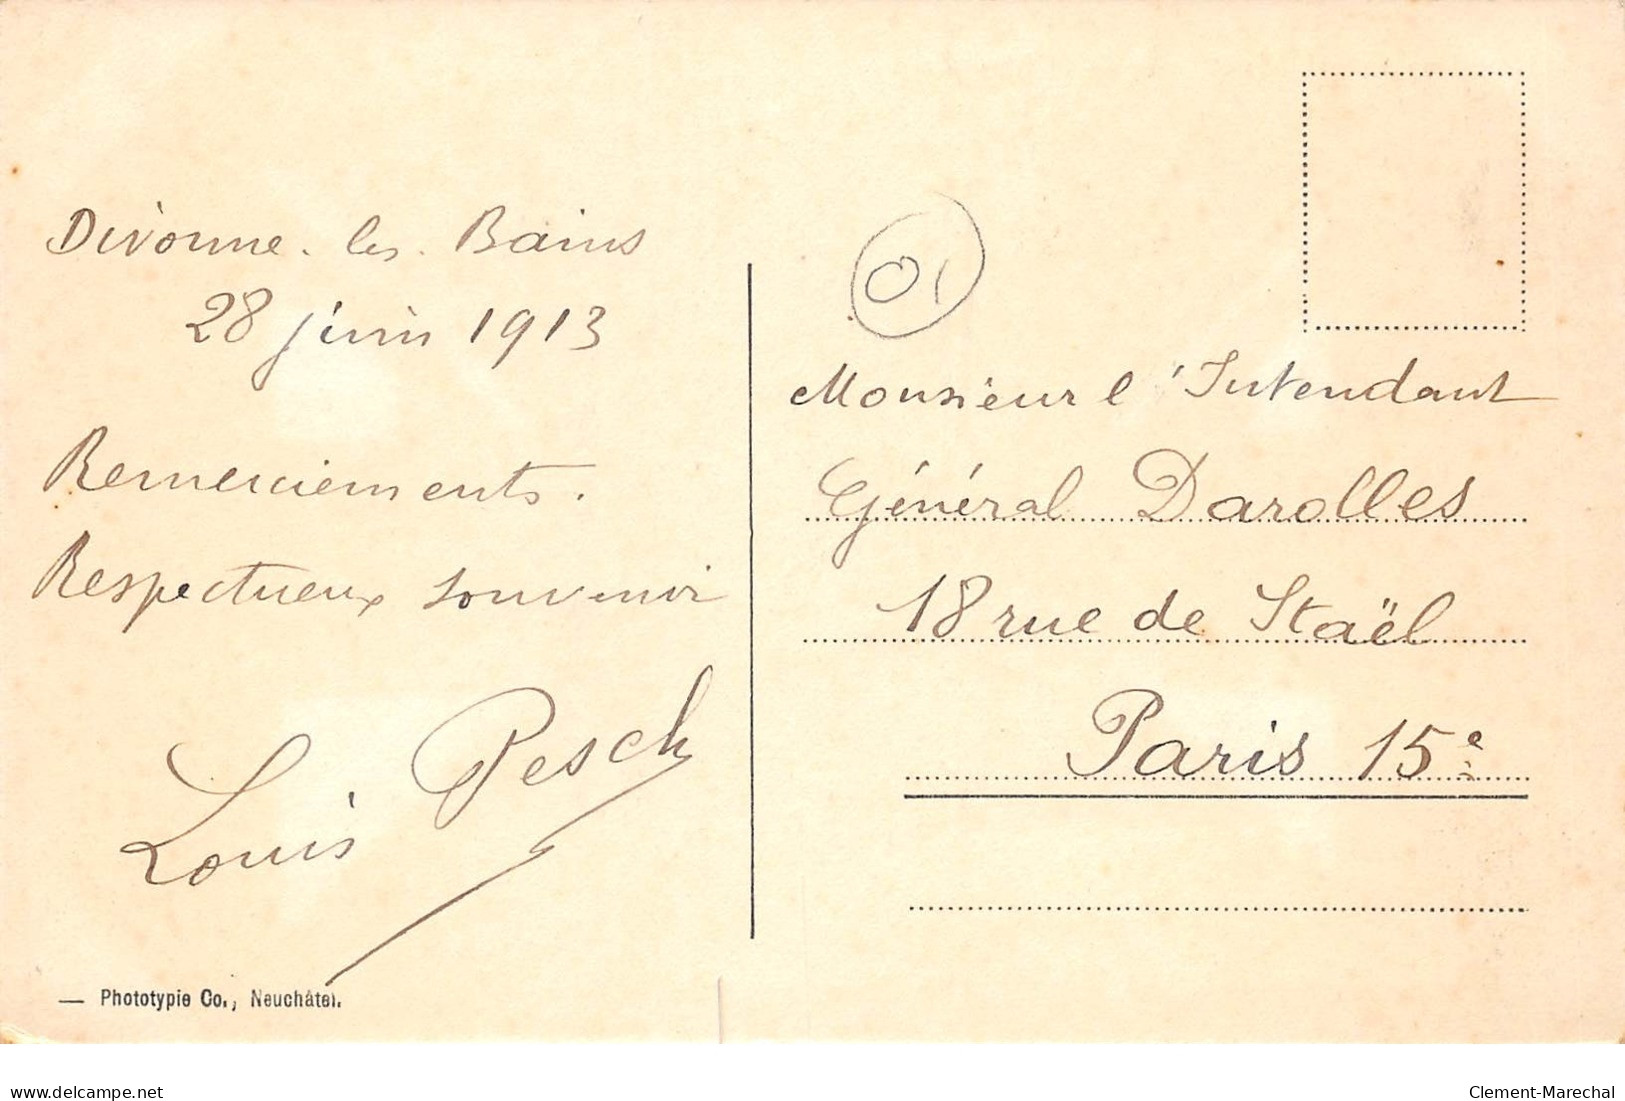 Divonne-les-Bains
28 juin 1913
Remerciements.
Respectueux souvenir
Louis Pesch
— Phototypie Co., Neuchâtel.
01
Monsieur l'Intendant
Général Darolles
18 rue de Staël
Paris 15e
delcampe.net
Clement-Marechal